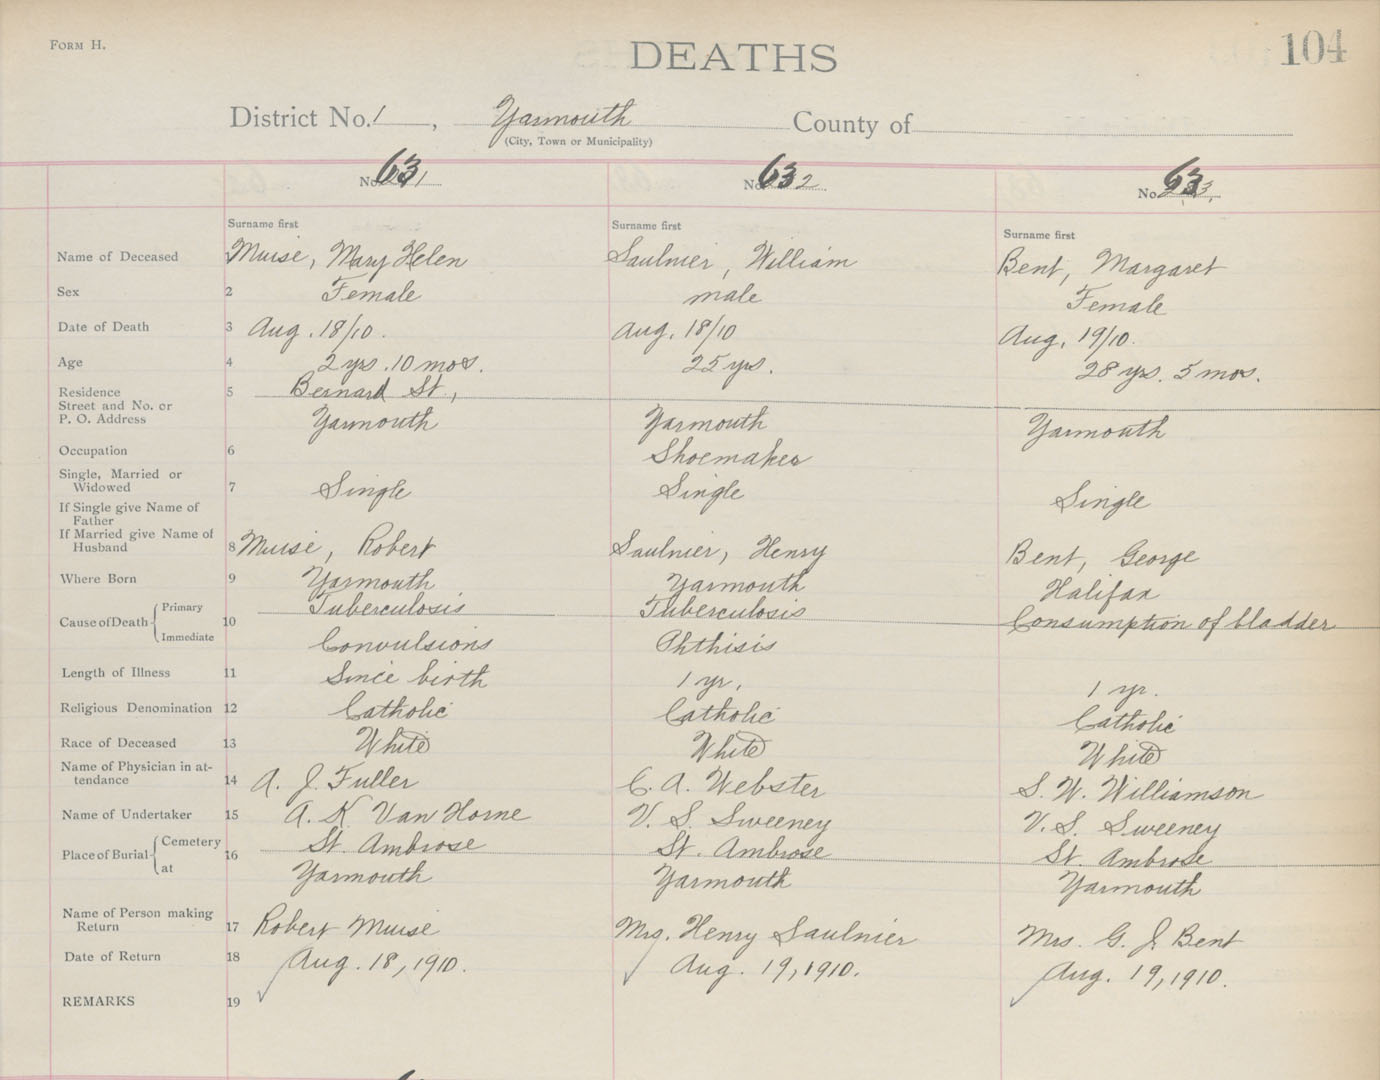 FORM H.
DEATHS
104
District No. 1, Yarmouth County of
(City, Town or Municipality)
No. 631 No. 632 No. 633
Surname first Surname first Surname first
Name of Deceased Muise, Mary Helen Saulnier, William Bent, Margaret
Sex 2 Female male Female
Date of Death 3 Aug. 18/10. Aug. 18/10 Aug. 19/10.
Age 4 2 yrs. 10 mos. 25 yrs. 28 yrs. 5 mos.
Residence 5 Bernard St.,
Street and No. or
P. O. Address Yarmouth Yarmouth Yarmouth
Occupation 6 Shoemaker
Single, Married or
Widowed 7 Single Single Single
If Single give Name of
Father
If Married give Name of
Husband 8 Muise, Robert Saulnier, Henry Bent, George
Where Born 9 Yarmouth Yarmouth Halifax
Cause of Death 10 Primary Tuberculosis Tuberculosis Consumption of bladder
Immediate Convulsions Phthisis
Length of Illness 11 Since birth 1 yr. 1 yr.
Religious Denomination 12 Catholic Catholic Catholic
Race of Deceased 13 White White White
Name of Physician in at-
tendance 14 A. J. Fuller C. A. Webster S. W. Williamson
Name of Undertaker 15 A. K Van Horne V. S. Sweeney V. S. Sweeney
Place of Burial 16 Cemetery St. Ambrose St. Ambrose St. Ambrose
at Yarmouth Yarmouth Yarmouth
Name of Person making
Return 17 Robert Muise Mrs. Henry Saulnier Mrs. G. J. Bent
Date of Return 18 Aug. 18, 1910. Aug. 19, 1910. Aug. 19, 1910.
REMARKS 19